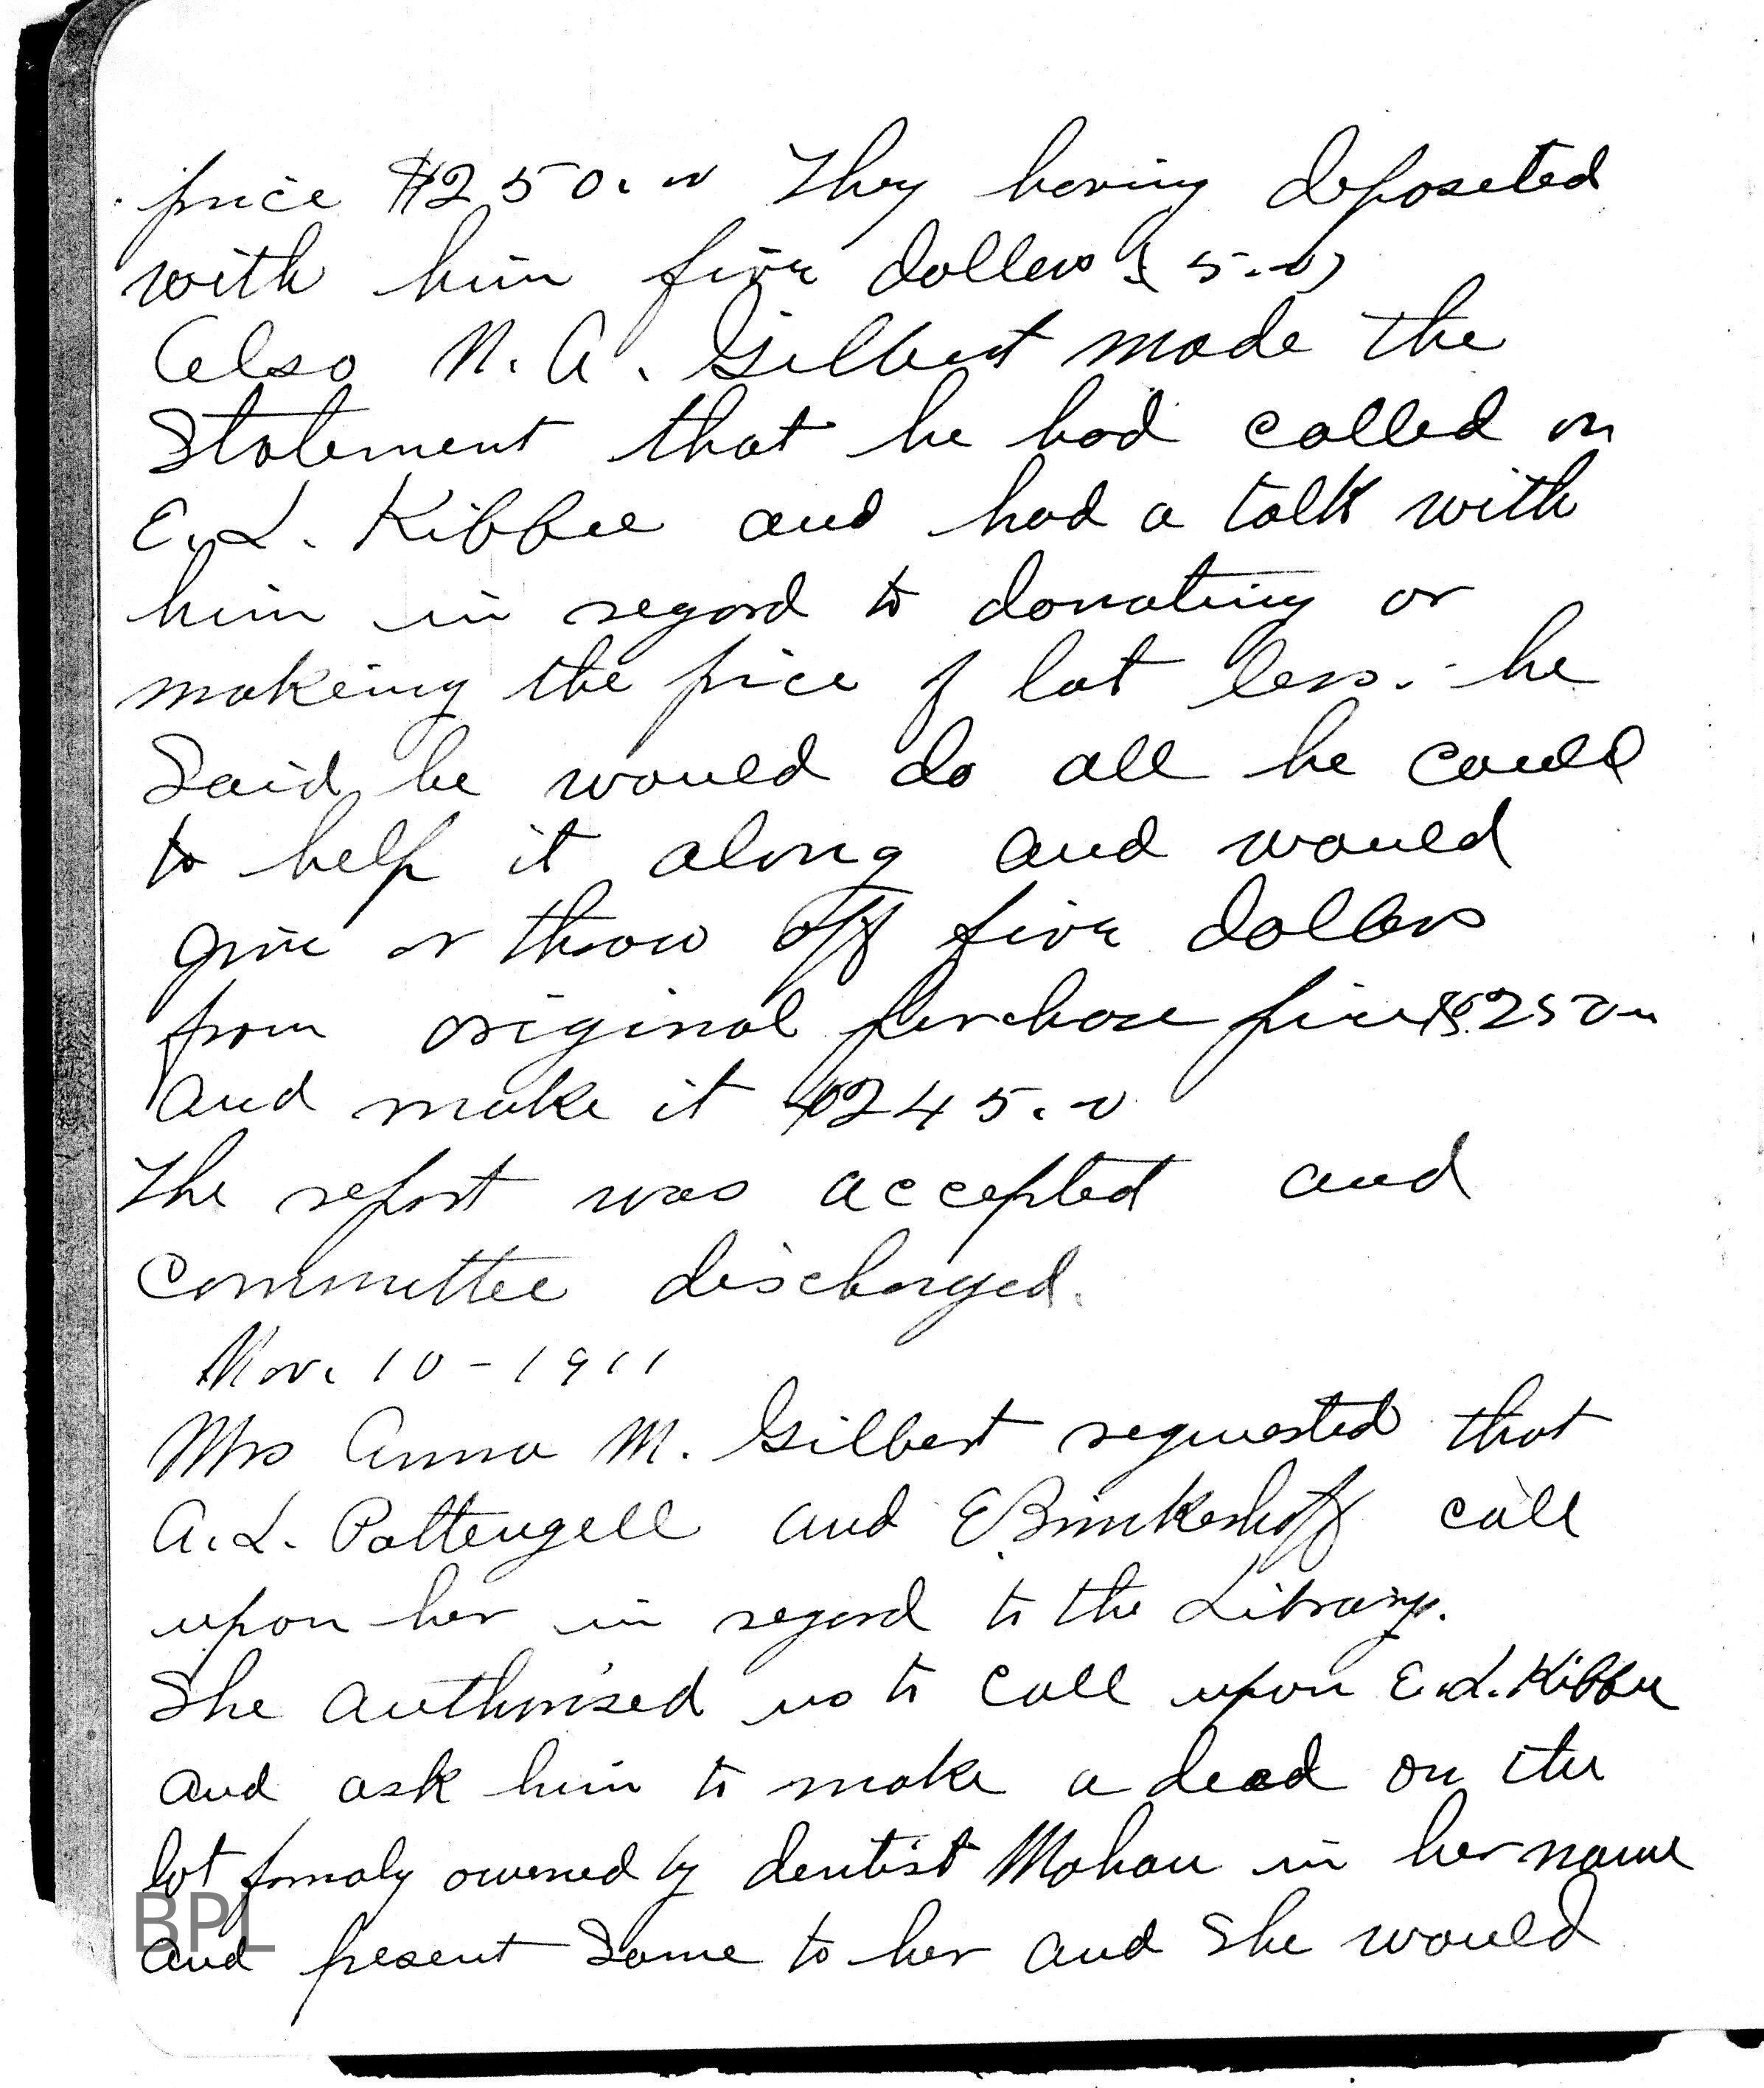 price $250.00 They having deposeted
with him five dollers (5.00)
Also N. A. Gilbert made the
Statement that he had called on
E. L. Kibbee and had a talk with
him in regard to donating or
makeing the price of lot less. he
Said he would do all he could
to help it along and would
give or throw off five dollers
from original perchase price $250.00
and make it $245.00
The report was accepted and
Committee discharged.
Nov. 10 - 1911
Mrs Anna M. Gilbert requested that
A. L. Pattengell and E. Brinkerhoff call
upon her in regard to the Library.
She authorised us to call upon E. L. Kibbee
and ask him to make a deed on the
lot formaly owened by dentist Mahan in her name
BPL
and present Same to her and She would